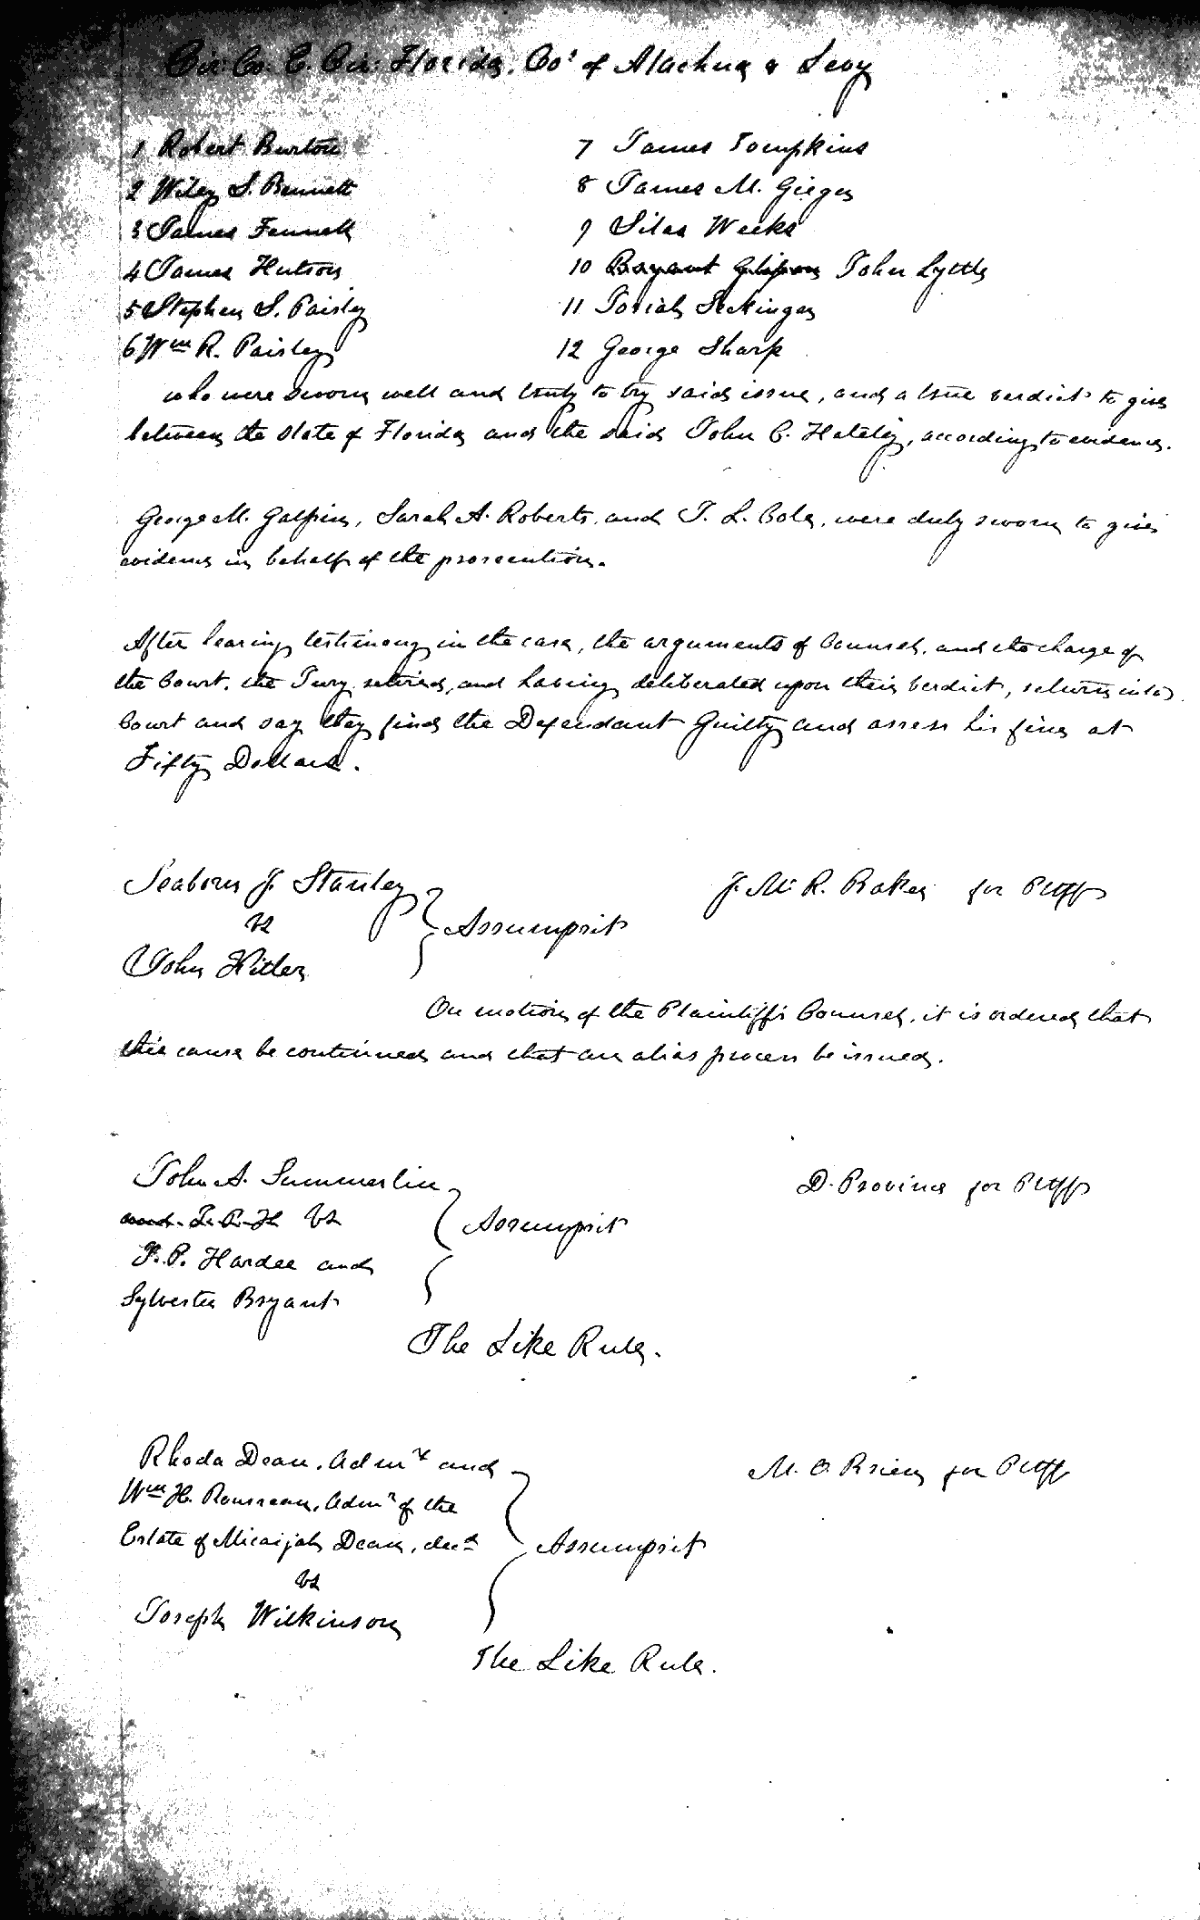 Cir. Co. E. Cir. Florida, Co.s of Alachua & Levy
1 Robert Burton
2 Wiley S. Bennett
3 James Fennell
4 James Hutson
5 Stephen S. Paisley
6 Wm R. Paisley
7 James Tompkins
8 James M. Gieger
9 Silas Weeks
10 Bryant John Lyttle
11 Josiah Seckinger
12 George Sharp
who were sworn well and truly to try said issue, and a true verdict to give
between the State of Florida and the said John C. Hateley, according to evidence.
George M. Galphin, Sarah A. Roberts, and T. L. Cole, were duly sworn to give
evidence in behalf of the prosecution.
After hearing testimony in the case, the arguments of Counsel, and the charge of
the Court, the Jury retired, and having deliberated upon their verdict, return into
Court and say they find the Defendant Guilty and assess his fine at
Fifty Dollars.
Seaborn J. Stanley
vs
John Hitler
Assumpsit
J. M. R. Baker for Pltff
On motion of the Plaintiff's Counsel, it is ordered that
this cause be continued and that an alias process be issued.
John A. Summerlin
and T. P. H vs
T. P. Hardee and
Sylvester Bryant
Assumpsit
D. Provinc for Pltff
The Like Rule.
Rhoda Dean, Admx and
Wm H. Rousseau, Admr of the
Estate of Micaijah Dean, decd
vs
Joseph Wilkinson
Assumpsit
M. O Brien for Pltff
The Like Rule.